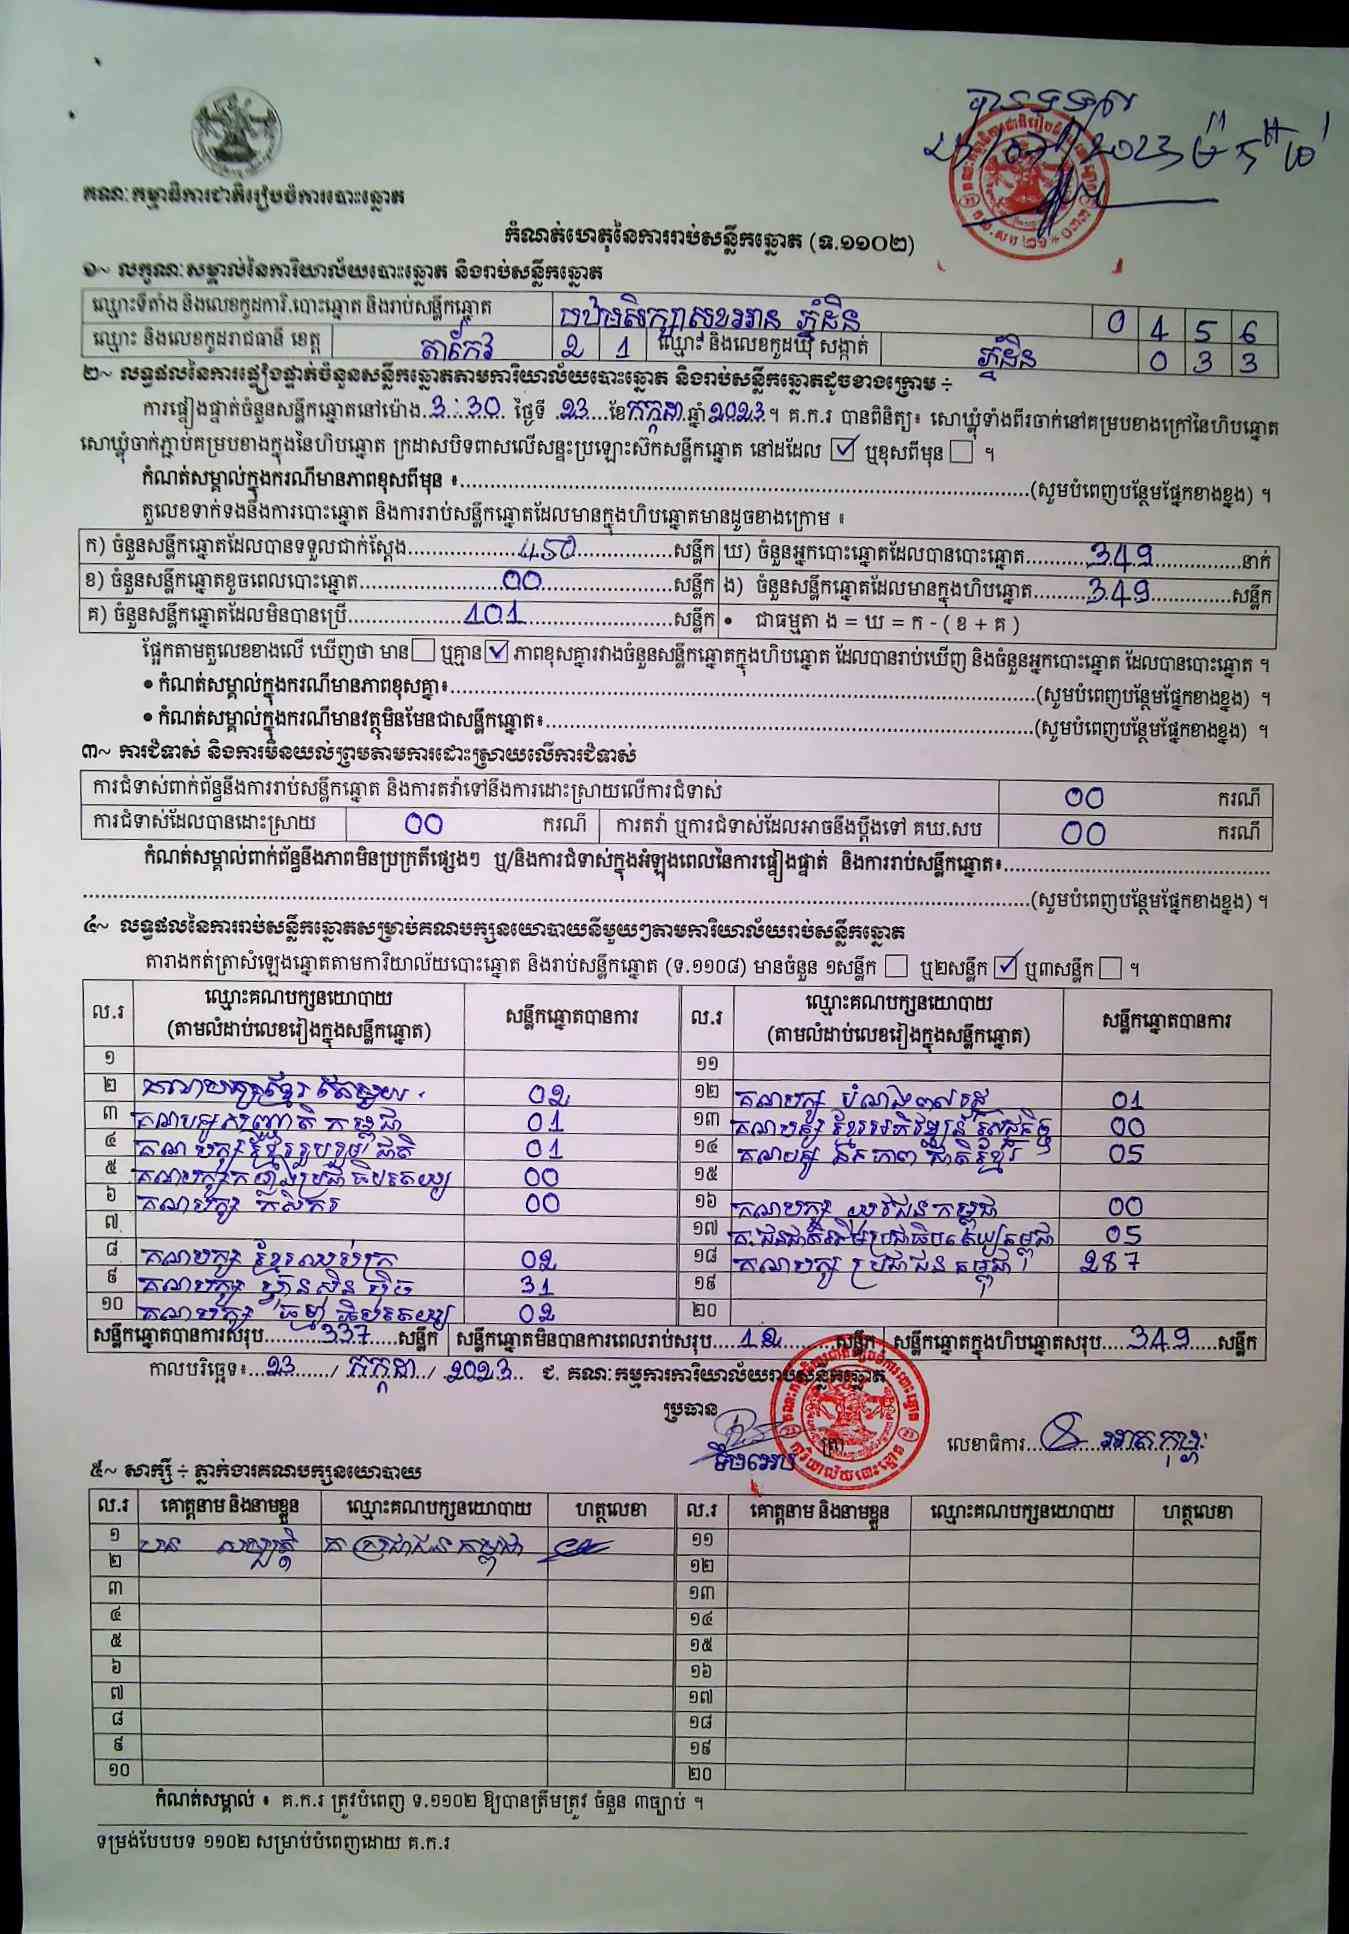 បានទទួល
គណៈកម្មាធិការជាតិរៀបចំការបោះឆ្នោត
កំណត់ហេតុនៃការរាប់សន្លឹកឆ្នោត (ទ.១១០២)
១~ លក្ខណៈសម្គាល់នៃការិយាល័យបោះឆ្នោត និងរាប់សន្លឹកឆ្នោត
ឈ្មោះទីតាំង និងលេខកូដការិ.បោះឆ្នោត និងរាប់សន្លឹកឆ្នោត ភ្នំដិន 0 4 5 6
ឈ្មោះ និងលេខកូដរាជធានី ខេត្ត តាកែវ 2 1 ឈ្មោះ និងលេខកូដឃុំ សង្កាត់ ភ្នំដិន 0 3 3
២~ លទ្ធផលនៃការផ្ទៀងផ្ទាត់ចំនួនសន្លឹកឆ្នោតតាមការិយាល័យបោះឆ្នោត និងរាប់សន្លឹកឆ្នោតដូចខាងក្រោម ÷
ការផ្ទៀងផ្ទាត់ចំនួនសន្លឹកឆ្នោតនៅម៉ោង 3:30 ថ្ងៃទី 23 ខែកក្កដា ឆ្នាំ 2023 ។ គ.ក.រ បានពិនិត្យ៖ សោឃ្លុំទាំងពីរចាក់នៅគម្របខាងក្រៅនៃហិបឆ្នោត
សោឃ្លុំចាក់ភ្ជាប់គម្របខាងក្នុងនៃហិបឆ្នោត ក្រដាសបិទពាសលើសន្ទះប្រឡោះស៊កសន្លឹកឆ្នោត នៅដដែល ☑ ឬខុសពីមុន ☐ ។
កំណត់សម្គាល់ក្នុងករណីមានភាពខុសពីមុន ៖ (សូមបំពេញបន្ថែមផ្នែកខាងខ្នង) ។
តួលេខទាក់ទងនឹងការបោះឆ្នោត និងការរាប់សន្លឹកឆ្នោតដែលមានក្នុងហិបឆ្នោតមានដូចខាងក្រោម ៖
ក) ចំនួនសន្លឹកឆ្នោតដែលបានទទួលជាក់ស្តែង 450 សន្លឹក ឃ) ចំនួនអ្នកបោះឆ្នោតដែលបានបោះឆ្នោត 349 នាក់
ខ) ចំនួនសន្លឹកឆ្នោតខូចពេលបោះឆ្នោត 00 សន្លឹក ង) ចំនួនសន្លឹកឆ្នោតដែលមានក្នុងហិបឆ្នោត 349 សន្លឹក
គ) ចំនួនសន្លឹកឆ្នោតដែលមិនបានប្រើ 101 សន្លឹក • ជាធម្មតា ង = ឃ = ក - ( ខ + គ )
ផ្អែកតាមតួលេខខាងលើ ឃើញថា មាន ☐ ឬគ្មាន ☑ ភាពខុសគ្នារវាងចំនួនសន្លឹកឆ្នោតក្នុងហិបឆ្នោត ដែលបានរាប់ឃើញ និងចំនួនអ្នកបោះឆ្នោត ដែលបានបោះឆ្នោត ។
• កំណត់សម្គាល់ក្នុងករណីមានភាពខុសគ្នា៖ (សូមបំពេញបន្ថែមផ្នែកខាងខ្នង) ។
• កំណត់សម្គាល់ក្នុងករណីមានវត្ថុមិនមែនជាសន្លឹកឆ្នោត៖ (សូមបំពេញបន្ថែមផ្នែកខាងខ្នង) ។
៣~ ការជំទាស់ និងការមិនយល់ព្រមតាមការដោះស្រាយលើការជំទាស់
ការជំទាស់ពាក់ព័ន្ធនឹងការរាប់សន្លឹកឆ្នោត និងការតវ៉ាទៅនឹងការដោះស្រាយលើការជំទាស់ 00 ករណី
ការជំទាស់ដែលបានដោះស្រាយ 00 ករណី ការតវ៉ា ឬការជំទាស់ដែលអាចនឹងប្តឹងទៅ គឃ.សប 00 ករណី
កំណត់សម្គាល់ពាក់ព័ន្ធនឹងភាពមិនប្រក្រតីផ្សេងៗ ឬ/និងការជំទាស់ក្នុងអំឡុងពេលនៃការផ្ទៀងផ្ទាត់ និងការរាប់សន្លឹកឆ្នោត៖
(សូមបំពេញបន្ថែមផ្នែកខាងខ្នង) ។
៤~ លទ្ធផលនៃការរាប់សន្លឹកឆ្នោតសម្រាប់គណបក្សនយោបាយនីមួយៗតាមការិយាល័យរាប់សន្លឹកឆ្នោត
តារាងកត់ត្រាសំឡេងឆ្នោតតាមការិយាល័យបោះឆ្នោត និងរាប់សន្លឹកឆ្នោត (ទ.១១០៨) មានចំនួន ១សន្លឹក ☐ ឬ២សន្លឹក ☑ ឬ៣សន្លឹក ☐ ។
ល.រ ឈ្មោះគណបក្សនយោបាយ (តាមលំដាប់លេខរៀងក្នុងសន្លឹកឆ្នោត) សន្លឹកឆ្នោតបានការ ល.រ ឈ្មោះគណបក្សនយោបាយ (តាមលំដាប់លេខរៀងក្នុងសន្លឹកឆ្នោត) សន្លឹកឆ្នោតបានការ
១ ១១
២ គណបក្សខ្មែរតែមួយ 02 ១២ គណបក្ស 01
៣ គណបក្សសញ្ជាតិកម្ពុជា 01 ១៣ គណបក្សខ្មែរអភិវឌ្ឍន៍សេដ្ឋកិច្ច 00
៤ គណបក្សខ្មែររួបរួមជាតិ 01 ១៤ គណបក្ស ឯកភាពជាតិខ្មែរ 05
៥ គណបក្សកម្លាំងប្រជាធិបតេយ្យ 00 ១៥
៦ គណបក្ស កសិករ 00 ១៦ គណបក្ស យុវជនកម្ពុជា 00
៧ ១៧ គ.ជនជាតិដើមប្រជាធិបតេយ្យកម្ពុជា 05
៨ គណបក្ស ខ្មែរឈប់ក្រ 02 ១៨ គណបក្ស ប្រជាជនកម្ពុជា 287
៩ គណបក្ស ហ្វ៊ុនស៊ិនប៉ិច 31 ១៩
១០ គណបក្ស ធម្មាធិបតេយ្យ 02 ២០
សន្លឹកឆ្នោតបានការសរុប 337 សន្លឹក សន្លឹកឆ្នោតមិនបានការពេលរាប់សរុប 12 សន្លឹក សន្លឹកឆ្នោតក្នុងហិបឆ្នោតសរុប 349 សន្លឹក
កាលបរិច្ឆេទ៖ 23 / កក្កដា / 2023 ជ. គណៈកម្មការការិយាល័យរាប់សន្លឹកឆ្នោត
ប្រធាន
ត្រា លេខាធិការ
៥~ សាក្សី ÷ ភ្នាក់ងារគណបក្សនយោបាយ
ល.រ គោត្តនាម និងនាមខ្លួន ឈ្មោះគណបក្សនយោបាយ ហត្ថលេខា ល.រ គោត្តនាម និងនាមខ្លួន ឈ្មោះគណបក្សនយោបាយ ហត្ថលេខា
១ គ ប្រជាជនកម្ពុជា ១១
២ ១២
៣ ១៣
៤ ១៤
៥ ១៥
៦ ១៦
៧ ១៧
៨ ១៨
៩ ១៩
១០ ២០
កំណត់សម្គាល់ ៖ គ.ក.រ ត្រូវបំពេញ ទ.១១០២ ឱ្យបានត្រឹមត្រូវ ចំនួន ៣ច្បាប់ ។
ទម្រង់បែបបទ ១១០២ សម្រាប់បំពេញដោយ គ.ក.រ